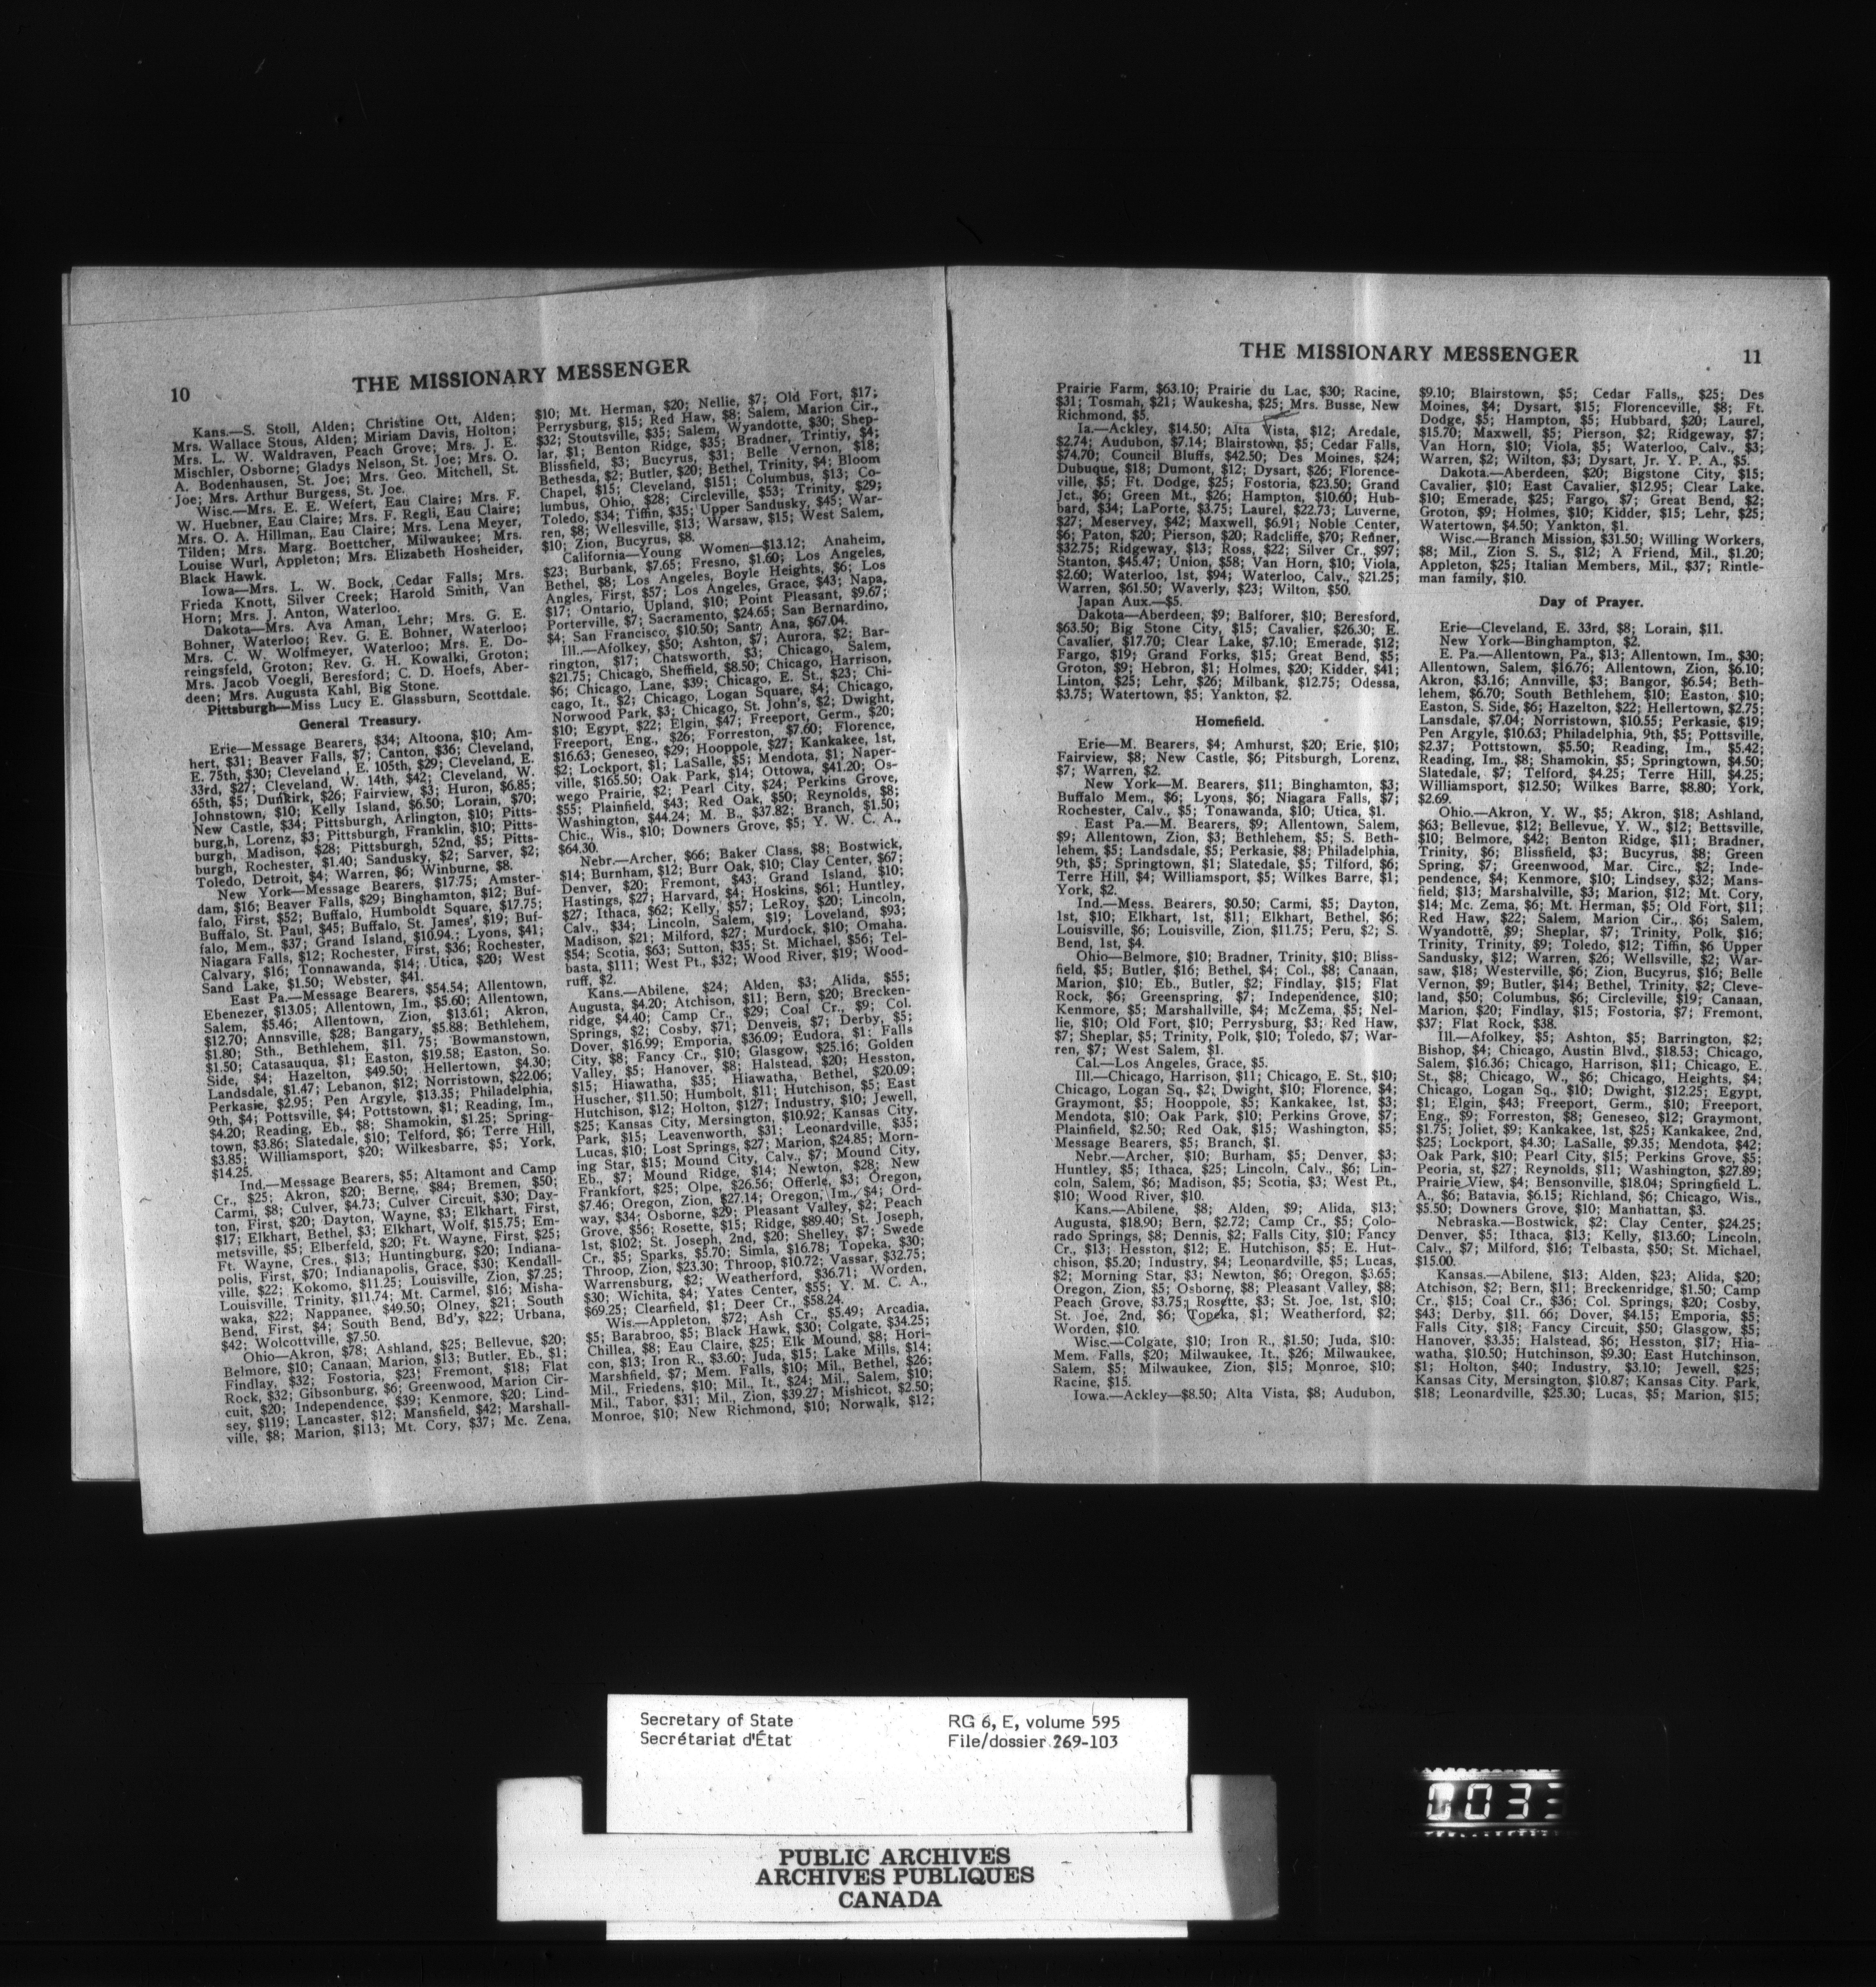 10
THE MISSIONARY MESSENGER
Kans.—S. Stoll, Alden; Christine Ott, Alden;
Mrs. Wallace Stous, Alden; Miriam Davis, Holton;
Mrs. L. W. Waldraven, Peach Grove; Mrs. J. E.
Mischler, Osborne; Gladys Nelson, St. Joe; Mrs. O.
A. Bodenhausen, St. Joe; Mrs. Geo. Mitchell, St.
Joe; Mrs. Arthur Burgess, St. Joe.
Wisc.—Mrs. E. E. Wefert, Eau Claire; Mrs. F.
W. Huebner, Eau Claire; Mrs. F. Regli, Eau Claire;
Mrs. O. A. Hillman, Eau Claire; Mrs. Lena Meyer,
Tilden; Mrs. Marg. Boettcher, Milwaukee; Mrs.
Louise Wurl, Appleton; Mrs. Elizabeth Hosheider,
Black Hawk.
Iowa—Mrs. L. W. Bock, Cedar Falls; Mrs.
Frieda Knott, Silver Creek; Harold Smith, Van
Horn; Mrs. J. Anton, Waterloo.
Dakota—Mrs. Ava Aman, Lehr; Mrs. G. E.
Bohner, Waterloo; Rev. G. E. Bohner, Waterloo;
Mrs. C. W. Wolfmeyer, Waterloo; Mrs. E. Do-
reingsfeld, Groton; Rev. G. H. Kowalki, Groton;
Mrs. Jacob Voegli, Beresford; C. D. Hoefs, Aber-
deen; Mrs. Augusta Kahl, Big Stone.
Pittsburgh—Miss Lucy E. Glassburn, Scottdale.
General Treasury.
Erie—Message Bearers, $34; Altoona, $10; Am-
hert, $31; Beaver Falls, $7; Canton, $36; Cleveland,
E. 75th, $30; Cleveland, E. 105th, $29; Cleveland, E.
33rd, $27; Cleveland, W. 14th, $42; Cleveland, W.
65th, $5; Dunkirk, $26; Fairview, $3; Huron, $6.85;
Johnstown, $10; Kelly Island, $6.50; Lorain, $70;
New Castle, $34; Pittsburgh, Arlington, $10; Pitts-
burg,h, Lorenz, $3; Pittsburgh, Franklin, $10; Pitts-
burgh, Madison, $28; Pittsburgh, 52nd, $5; Pitts-
burgh, Rochester, $1.40; Sandusky, $2; Sarver, $2;
Toledo, Detroit, $4; Warren, $6; Winburne, $8.
New York—Message Bearers, $17.75; Amster-
dam, $16; Beaver Falls, $29; Binghamton, $12; Buf-
falo, First, $52; Buffalo, Humboldt Square, $17.75;
Buffalo, St. Paul, $45; Buffalo, St. James', $19; Buf-
falo, Mem., $37; Grand Island, $10.94.; Lyons, $41;
Niagara Falls, $12; Rochester, First, $36; Rochester,
Calvary, $16; Tonnawanda, $14; Utica, $20; West
Sand Lake, $1.50; Webster, $41.
East Pa.—Message Bearers, $54.54; Allentown,
Ebenezer, $13.05; Allentown, Im., $5.60; Allentown,
Salem, $5.46; Allentown, Zion, $13.61; Akron,
$12.70; Annsville, $28; Bangary, $5.88; Bethlehem,
$1.80; Sth., Bethlehem, $11. 75; Bowmanstown,
$1.50; Catasauqua, $1; Easton, $19.58; Easton, So.
Side, $4; Hazelton, $49.50; Hellertown, $4.30;
Landsdale, $1.47; Lebanon, $12; Norristown, $22.06;
Perkasie, $2.95; Pen Argyle, $13.35; Philadelphia,
9th, $4; Pottsville, $4; Pottstown, $1; Reading, Im.,
$4.20; Reading, Eb., $8; Shamokin, $1.25; Spring-
town, $3.86; Slatedale, $10; Telford, $6; Terre Hill,
$3.85; Williamsport, $20; Wilkesbarre, $5; York,
$14.25.
Ind.—Message Bearers, $5; Altamont and Camp
Cr., $25; Akron, $20; Berne, $84; Bremen, $50;
Carmi, $8; Culver, $4.73; Culver Circuit, $30; Day-
ton, First, $20; Dayton, Wayne, $3; Elkhart, First,
$17; Elkhart, Bethel, $3; Elkhart, Wolf, $15.75; Em-
metsville, $5; Elberfeld, $20; Ft. Wayne, First, $25;
Ft. Wayne, Cres., $13; Huntingburg, $20; Indiana-
polis, First, $70; Indianapolis, Grace, $30; Kendall-
ville, $22; Kokomo, $11.25; Louisville, Zion, $7.25;
Louisville, Trinity, $11.74; Mt. Carmel, $16; Misha-
waka, $22; Nappanee, $49.50; Olney, $21; South
Bend, First, $4; South Bend, Bd'y, $22; Urbana,
$42; Wolcottville, $7.50.
Ohio—Akron, $78; Ashland, $25; Bellevue, $20;
Belmore, $10; Canaan, Marion, $13; Butler, Eb., $1;
Findlay, $32; Fostoria, $23; Fremont, $18; Flat
Rock, $32; Gibsonburg, $6; Greenwood, Marion Cir-
cuit, $20; Independence, $39; Kenmore, $20; Lind-
sey, $119; Lancaster, $12; Mansfield, $42; Marshall-
ville, $8; Marion, $113; Mt. Cory, $37; Mc. Zena,
$10; Mt. Herman, $20; Nellie, $7; Old Fort, $17;
Perrysburg, $15; Red Haw, $8; Salem, Marion Cir.,
$32; Stoutsville, $35; Salem, Wyandotte, $30; Shep-
lar, $1; Benton Ridge, $35; Bradner, Trintiy, $4;
Blissfield, $3; Bucyrus, $31; Belle Vernon, $18;
Bethesda, $2; Butler, $20; Bethel, Trinity, $4; Bloom
Chapel, $15; Cleveland, $151; Columbus, $13; Co-
lumbus, Ohio, $28; Circleville, $53; Trinity, $29;
Toledo, $34; Tiffin, $35; Upper Sandusky, $45; War-
ren, $8; Wellesville, $13; Warsaw, $15; West Salem,
$10; Zion, Bucyrus, $8.
California—Young Women—$13.12; Anaheim,
$23; Burbank, $7.65; Fresno, $1.60; Los Angeles,
Bethel, $8; Los Angeles, Boyle Heights, $6; Los
Angles, First, $57; Los Angeles, Grace, $43; Napa,
$17; Ontario, Upland, $10; Point Pleasant, $9.67;
Porterville, $7; Sacramento, $24.65; San Bernardino,
$4; San Francisco, $10.50; Santa Ana, $67.04.
Ill.—Afolkey, $50; Ashton, $7; Aurora, $2; Bar-
rington, $17; Chatsworth, $3; Chicago, Salem,
$21.75; Chicago, Sheffield, $8.50; Chicago, Harrison,
$6; Chicago, Lane, $39; Chicago, E. St., $23; Chi-
cago, It., $2; Chicago, Logan Square, $4; Chicago,
Norwood Park, $3; Chicago, St. John's, $2; Dwight,
$10; Egypt, $22; Elgin, $47; Freeport, Germ., $20;
Freeport, Eng., $26; Forreston, $7.60; Florence,
$16.63; Geneseo, $29; Hooppole, $27; Kankakee, 1st,
$2; Lockport, $1; LaSalle, $5; Mendota, $1; Naper-
ville, $165.50; Oak Park, $14; Ottowa, $41.20; Os-
wego Prairie, $2; Pearl City, $24; Perkins Grove,
$55; Plainfield, $43; Red Oak, $50; Reynolds, $8;
Washington, $44.24; M. B., $37.82; Branch, $1.50;
Chic., Wis., $10; Downers Grove, $5; Y. W. C. A.,
$64.30.
Nebr.—Archer, $66; Baker Class, $8; Bostwick,
$14; Burnham, $12; Burr Oak, $10; Clay Center, $67;
Denver, $20; Fremont, $43; Grand Island, $10;
Hastings, $27; Harvard, $4; Hoskins, $61; Huntley,
$27; Ithaca, $62; Kelly, $57; LeRoy, $20; Lincoln,
Calv., $34; Lincoln, Salem, $19; Loveland, $93;
Madison, $21; Milford, $27; Murdock, $10; Omaha.
$54; Scotia, $63; Sutton, $35; St. Michael, $56; Tel-
basta, $111; West Pt., $32; Wood River, $19; Wood-
ruff, $2.
Kans.—Abilene, $24; Alden, $3; Alida, $55;
Augusta, $4.20; Atchison, $11; Bern, $20; Brecken-
ridge, $4.40; Camp Cr., $29; Coal Cr., $9; Col.
Springs, $2; Cosby, $71; Denveis, $7; Derby, $5;
Dover, $16.99; Emporia, $36.09; Eudora, $1; Falls
City, $8; Fancy Cr., $10; Glasgow, $25.16; Golden
Valley, $5; Hanover, $8; Halstead, $20; Hesston,
$15; Hiawatha, $35; Hiawatha, Bethel, $20.09;
Huscher, $11.50; Humbolt, $11; Hutchison, $5; East
Hutchison, $12; Holton, $127; Industry, $10; Jewell,
$25; Kansas City, Mersington, $10.92; Kansas City,
Park, $15; Leavenworth, $31; Leonardville, $35;
Lucas, $10; Lost Springs, $27; Marion, $24.85; Morn-
ing Star, $15; Mound City, Calv., $7; Mound City,
Eb., $7; Mound Ridge, $14; Newton, $28; New
Frankfort, $25; Olpe, $26.56; Offerle, $3; Oregon,
$7.46; Oregon, Zion, $27.14; Oregon, Im., $4; Ord-
way, $34; Osborne, $29; Pleasant Valley, $2; Peach
Grove, $56; Rosette, $15; Ridge, $89.40; St. Joseph,
1st, $102; St. Joseph, 2nd, $20; Shelley, $7; Swede
Cr., $5; Sparks, $5.70; Simla, $16.78; Topeka, $30;
Throop, Zion, $23.30; Throop, $10.72; Vassar, $32.75;
Warrensburg, $2; Weatherford, $36.71; Worden,
$30; Wichita, $4; Yates Center, $55; Y. M. C. A.,
$69.25; Clearfield, $1; Deer Cr., $58.24.
Wis.—Appleton, $72; Ash Cr., $5.49; Arcadia,
$5; Barabroo, $5; Black Hawk, $30; Colgate, $34.25;
Chillea, $8; Eau Claire, $25; Elk Mound, $8; Hori-
con, $13; Iron R., $3.60; Juda, $15; Lake Mills, $14;
Marshfield, $7; Mem. Falls, $10; Mil., Bethel, $26;
Mil., Friedens, $10; Mil., It., $24; Mil., Salem, $10;
Mil., Tabor, $31; Mil., Zion, $39.27; Mishicot, $2.50;
Monroe, $10; New Richmond, $10; Norwalk, $12;
THE MISSIONARY MESSENGER
11
Prairie Farm, $63.10; Prairie du Lac, $30; Racine,
$31; Tosmah, $21; Waukesha, $25; Mrs. Busse, New
Richmond, $5.
Ia.—Ackley, $14.50; Alta Vista, $12; Aredale,
$2.74; Audubon, $7.14; Blairstown, $5; Cedar Falls,
$74.70; Council Bluffs, $42.50; Des Moines, $24;
Dubuque, $18; Dumont, $12; Dysart, $26; Florence-
ville, $5; Ft. Dodge, $25; Fostoria, $23.50; Grand
Jct., $6; Green Mt., $26; Hampton, $10.60; Hub-
bard, $34; LaPorte, $3.75; Laurel, $22.73; Luverne,
$27; Meservey, $42; Maxwell, $6.91; Noble Center,
$6; Paton, $20; Pierson, $20; Radcliffe, $70; Refiner,
$32.75; Ridgeway, $13; Ross, $22; Silver Cr., $97;
Stanton, $45.47; Union, $58; Van Horn, $10; Viola,
$2.60; Waterloo, 1st, $94; Waterloo, Calv., $21.25;
Warren, $61.50; Waverly, $23; Wilton, $50.
Japan Aux.—$5.
Dakota—Aberdeen, $9; Balforer, $10; Beresford,
$63.50; Big Stone City, $15; Cavalier, $26.30; E.
Cavalier, $17.70; Clear Lake, $7.10; Emerade, $12;
Fargo, $19; Grand Forks, $15; Great Bend, $5;
Groton, $9; Hebron, $1; Holmes, $20; Kidder, $41;
Linton, $25; Lehr, $26; Milbank, $12.75; Odessa,
$3.75; Watertown, $5; Yankton, $2.
Homefield.
Erie—M. Bearers, $4; Amhurst, $20; Erie, $10;
Fairview, $8; New Castle, $6; Pitsburgh, Lorenz,
$7; Warren, $2.
New York—M. Bearers, $11; Binghamton, $3;
Buffalo Mem., $6; Lyons, $6; Niagara Falls, $7;
Rochester, Calv., $5; Tonawanda, $10; Utica, $1.
East Pa.—M. Bearers, $9; Allentown, Salem,
$9; Allentown, Zion, $3; Bethlehem, $5; S. Beth-
lehem, $5; Landsdale, $5; Perkasie, $8; Philadelphia,
9th, $5; Springtown, $1; Slatedale, $5; Tilford, $6;
Terre Hill, $4; Williamsport, $5; Wilkes Barre, $1;
York, $2.
Ind.—Mess. Bearers, $0.50; Carmi, $5; Dayton,
1st, $10; Elkhart, 1st, $11; Elkhart, Bethel, $6;
Louisville, $6; Louisville, Zion, $11.75; Peru, $2; S.
Bend, 1st, $4.
Ohio—Belmore, $10; Bradner, Trinity, $10; Bliss-
field, $5; Butler, $16; Bethel, $4; Col., $8; Canaan,
Marion, $10; Eb., Butler, $2; Findlay, $15; Flat
Rock, $6; Greenspring, $7; Independence, $10;
Kenmore, $5; Marshallville, $4; McZema, $5; Nel-
lie, $10; Old Fort, $10; Perrysburg, $3; Red Haw,
$7; Sheplar, $5; Trinity, Polk, $10; Toledo, $7; War-
ren, $7; West Salem, $1.
Cal.—Los Angeles, Grace, $5.
Ill.—Chicago, Harrison, $11; Chicago, E. St., $10;
Chicago, Logan Sq., $2; Dwight, $10; Florence, $4;
Graymont, $5; Hooppole, $5; Kankakee, 1st, $3;
Mendota, $10; Oak Park, $10; Perkins Grove, $7;
Plainfield, $2.50; Red Oak, $15; Washington, $5;
Message Bearers, $5; Branch, $1.
Nebr.—Archer, $10; Burham, $5; Denver, $3;
Huntley, $5; Ithaca, $25; Lincoln, Calv., $6; Lin-
coln, Salem, $6; Madison, $5; Scotia, $3; West Pt.,
$10; Wood River, $10.
Kans.—Abilene, $8; Alden, $9; Alida, $13;
Augusta, $18.90; Bern, $2.72; Camp Cr., $5; Colo-
rado Springs, $8; Dennis, $2; Falls City, $10; Fancy
Cr., $13; Hesston, $12; E. Hutchison, $5; E. Hut-
chison, $5.20; Industry, $4; Leonardville, $5; Lucas,
$2; Morning Star, $3; Newton, $6; Oregon, $3.65;
Oregon, Zion, $5; Osborne, $8; Pleasant Valley, $8;
Peach Grove, $3.75; Rosette, $3; St. Joe, 1st, $10;
St. Joe, 2nd, $6; Topeka, $1; Weatherford, $2;
Worden, $10.
Wisc.—Colgate, $10; Iron R., $1.50; Juda, $10:
Mem. Falls, $20; Milwaukee, It., $26; Milwaukee,
Salem, $5; Milwaukee, Zion, $15; Monroe, $10;
Racine, $15.
Iowa.—Ackley—$8.50; Alta Vista, $8; Audubon,
$9.10; Blairstown, $5; Cedar Falls,, $25; Des
Moines, $4; Dysart, $15; Florenceville, $8; Ft.
Dodge, $5; Hampton, $5; Hubbard, $20; Laurel,
$15.70; Maxwell, $5; Pierson, $2; Ridgeway, $7;
Van Horn, $10; Viola, $5; Waterloo, Calv., $3;
Warren, $2; Wilton, $3; Dysart, Jr. Y. P. A., $5.
Dakota.—Aberdeen, $20; Bigstone City, $15;
Cavalier, $10; East Cavalier, $12.95; Clear Lake.
$10; Emerade, $25; Fargo, $7; Great Bend, $2;
Groton, $9; Holmes, $10; Kidder, $15; Lehr, $25;
Watertown, $4.50; Yankton, $1.
Wisc.—Branch Mission, $31.50; Willing Workers,
$8; Mil., Zion S. S., $12; A Friend, Mil., $1.20;
Appleton, $25; Italian Members, Mil., $37; Rintle-
man family, $10.
Day of Prayer.
Erie—Cleveland, E. 33rd, $8; Lorain, $11.
New York—Binghampton, $2.
E. Pa.—Allentown, Pa., $13; Allentown, Im., $30;
Allentown, Salem, $16.76; Allentown, Zion, $6.10;
Akron, $3.16; Annville, $3; Bangor, $6.54; Beth-
lehem, $6.70; South Bethlehem, $10; Easton, $10;
Easton, S. Side, $6; Hazelton, $22; Hellertown, $2.75;
Lansdale, $7.04; Norristown, $10.55; Perkasie, $19;
Pen Argyle, $10.63; Philadelphia, 9th, $5; Pottsville,
$2.37; Pottstown, $5.50; Reading, Im., $5.42;
Reading, Im., $8; Shamokin, $5; Springtown, $4.50;
Slatedale, $7; Telford, $4.25; Terre Hill, $4.25;
Williamsport, $12.50; Wilkes Barre, $8.80; York,
$2.69.
Ohio.—Akron, Y. W., $5; Akron, $18; Ashland,
$63; Bellevue, $12; Bellevue, Y. W., $12; Bettsville,
$10; Belmore, $42; Benton Ridge, $11; Bradner,
Trinity, $6; Blissfield, $3; Bucyrus, $8; Green
Spring, $7; Greenwood, Mar. Circ., $2; Inde-
pendence, $4; Kenmore, $10; Lindsey, $32; Mans-
field, $13; Marshalville, $3; Marion, $12; Mt. Cory,
$14; Mc. Zema, $6; Mt. Herman, $5; Old Fort, $11;
Red Haw, $22; Salem, Marion Cir., $6; Salem,
Wyandotte, $9; Sheplar, $7; Trinity, Polk, $16;
Trinity, Trinity, $9; Toledo, $12; Tiffin, $6 Upper
Sandusky, $12; Warren, $26; Wellsville, $2; War-
saw, $18; Westerville, $6; Zion, Bucyrus, $16; Belle
Vernon, $9; Butler, $14; Bethel, Trinity, $2; Cleve-
land, $50; Columbus, $6; Circleville, $19; Canaan,
Marion, $20; Findlay, $15; Fostoria, $7; Fremont,
$37; Flat Rock, $38.
Ill.—Afolkey, $5; Ashton, $5; Barrington, $2;
Bishop, $4; Chicago, Austin Blvd., $18.53; Chicago,
Salem, $16.36; Chicago, Harrison, $11; Chicago, E.
St., $8; Chicago, W., $6; Chicago, Heights, $4;
Chicago, Logan Sq., $10; Dwight, $12.25; Egypt,
$1; Elgin, $43; Freeport, Germ., $10; Freeport,
Eng., $9; Forreston, $8; Geneseo, $12; Graymont,
$1.75; Joliet, $9; Kankakee, 1st, $25; Kankakee, 2nd,
$25; Lockport, $4.30; LaSalle, $9.35; Mendota, $42;
Oak Park, $10; Pearl City, $15; Perkins Grove, $5;
Peoria, st, $27; Reynolds, $11; Washington, $27.89;
Prairie View, $4; Bensonville, $18.04; Springfield L.
A., $6; Batavia, $6.15; Richland, $6; Chicago, Wis.,
$5.50; Downers Grove, $10; Manhattan, $3.
Nebraska.—Bostwick, $2; Clay Center, $24.25;
Denver, $5; Ithaca, $13; Kelly, $13.60; Lincoln,
Calv., $7; Milford, $16; Telbasta, $50; St. Michael,
$15.00.
Kansas.—Abilene, $13; Alden, $23; Alida, $20;
Atchison, $2; Bern, $11; Breckenridge, $1.50; Camp
Cr., $15; Coal Cr., $36; Col. Springs, $20; Cosby,
$43; Derby, $11. 66; Dover, $4.15; Emporia, $5;
Falls City, $18; Fancy Circuit, $50; Glasgow, $5;
Hanover, $3.35; Halstead, $6; Hesston, $17; Hia-
watha, $10.50; Hutchinson, $9.30; East Hutchinson,
$1; Holton, $40; Industry, $3.10; Jewell, $25;
Kansas City, Mersington, $10.87; Kansas City. Park,
$18; Leonardville, $25.30; Lucas, $5; Marion, $15;
Secretary of State
Secrétariat d'État
RG 6, E, volume 595
File/dossier 269-103
PUBLIC ARCHIVES
ARCHIVES PUBLIQUES
CANADA